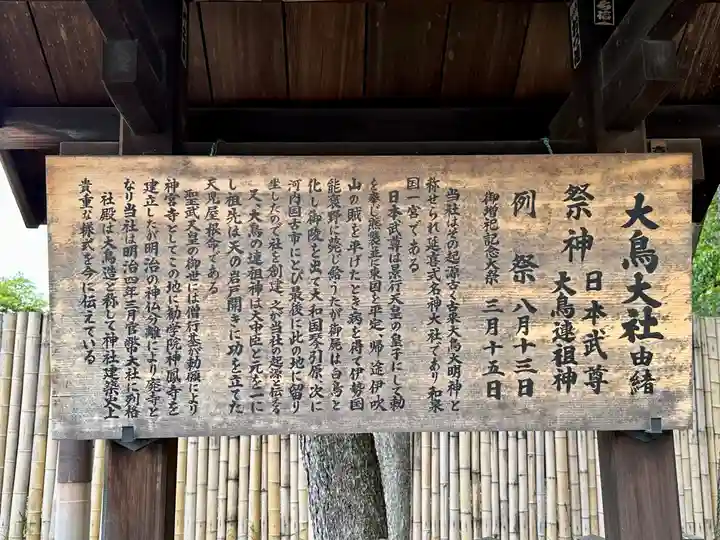 大鳥大社由緒
祭神 日本武尊
大鳥連祖神
例祭 八月十三日
御増祀記念大祭 三月十五日
当社はその起源古く古来大鳥大明神と
称せられ延喜式名神大社であり和泉
国一宮である
日本武尊は景行天皇の皇子にして勅
を奉じ熊襲並に東国を平定 帰途伊吹
山の賊を平げたとき病を得て伊勢国
能褒野に薨じ給うたが御屍は白鳥と
化し御陵を出で大和国琴引原 次に
河内国古市にとび最後に此の地に留り
坐したので社を創建 之が当社の起源と伝える
又 大鳥の連祖神は大中臣と元を一に
し祖先は天の岩戸開きに功を立てた
天児屋根命である
聖武天皇の御世には僧行基が勅願により
神宮寺としてこの地に勧学院神鳳寺を
建立したが明治の神仏分離により廃寺と
なり当社は明治四年三月官幣大社に列格
社殿は大鳥造と称して神社建築史上
貴重な様式を今に伝えている